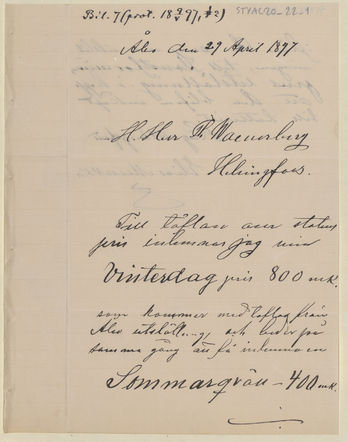 Bil. 7 (prot. 18 9/V 97, § 2)
STYAL20-22-1
Åbo den 29 April 1897
H. Herr Th Waenerberg
Helsingfors.
Till täflan om statens
pris inlemnar jag min
Vinterdag pris 800 mk.
som kommer med tåg från
Åbo utställning, och beder på
samma gång att få inlemna en
Sommarqväll – 400 mk.